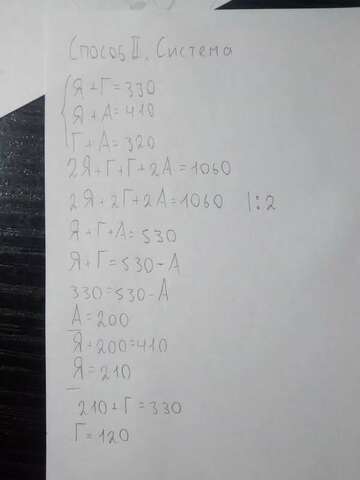 Способ II. Система
Я + Г = 330
Я + А = 410
Г + А = 320
2Я + Г + Г + 2А = 1060
2Я + 2Г + 2А = 1060 | : 2
Я + Г + А = 530
Я + Г = 530 - А
330 = 530 - А
А = 200
Я + 200 = 410
Я = 210
210 + Г = 330
Г = 120